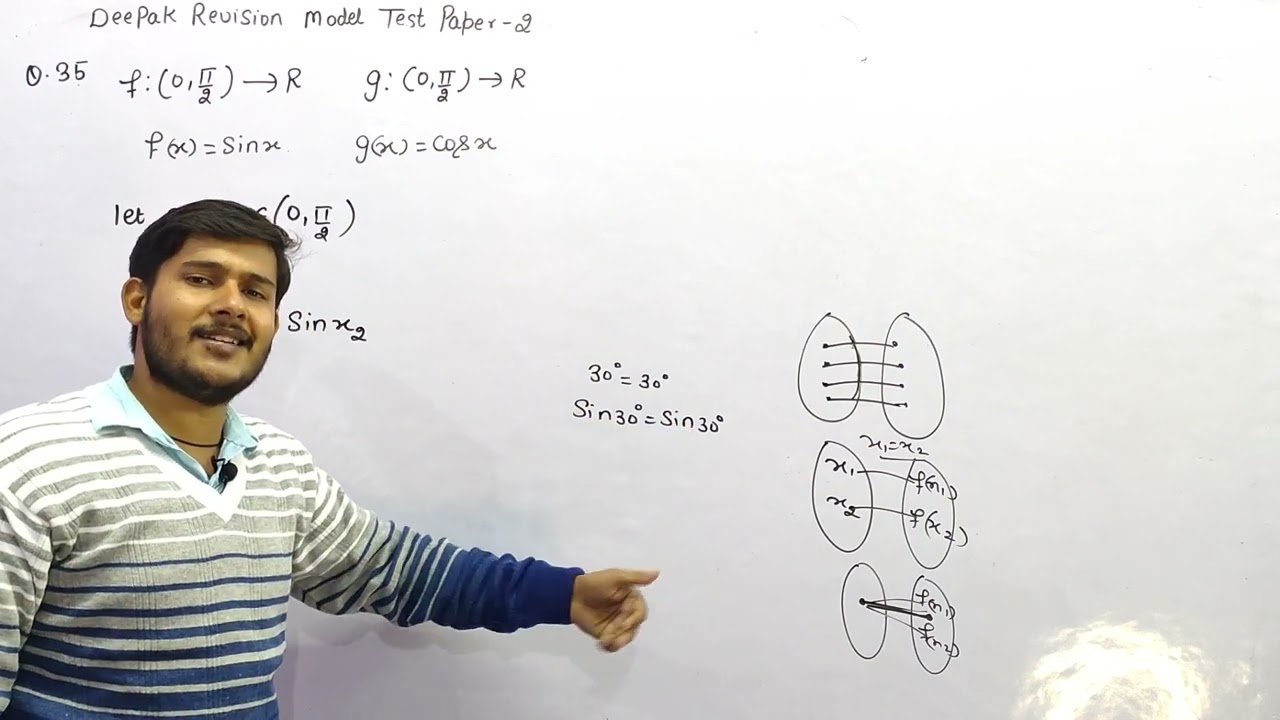 Deepak Revision Model Test Paper-2
Q.35 f:(0,π/2)→R g:(0,π/2)→R
f(x)=Sinx. g(x)=Cosx
let (0,π/2)
Sinx₂
30°=30°
Sin30°=Sin30°
x₁=x₂
x₁ f(x₁)
x₂ f(x₂)
f(x₁)
f(x₂)